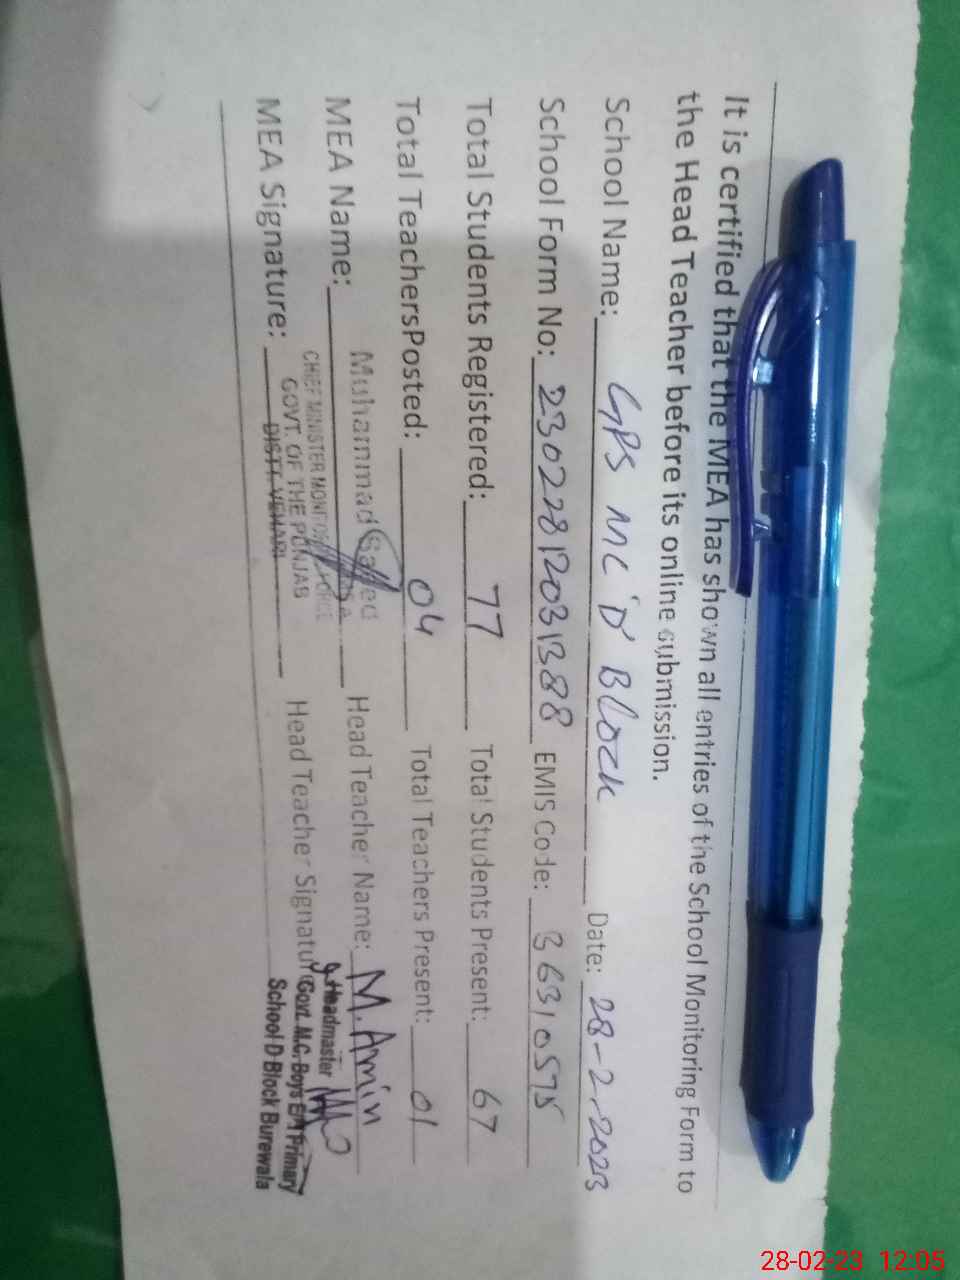 It is certified that the MEA has shown all entries of the School Monitoring Form to
the Head Teacher before its online submission.
School Name: GPS MC 'D' Block Date: 28-2-2023
School Form No: 23022812031388 EMIS Code: 36310575
Total Students Registered: 77 Total Students Present: 67
Total TeachersPosted: 04 Total Teachers Present: 01
MEA Name: Muhammad Saeed Head Teacher Name: M. Amin
CHIEF MINISTER MONITORING FORCE
MEA Signature: GOVT. OF THE PUNJAB Head Teacher Signature
DISTT. VEHARI
Headmaster
Govt. M.C. Boys E/M Primary
School D Block Burewala
28-02-23 12:05